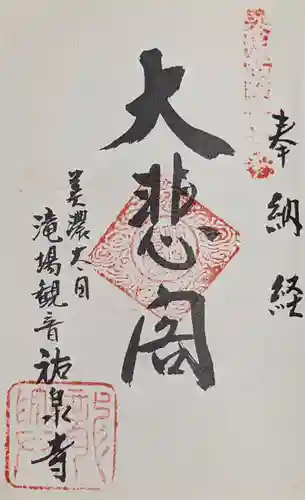 奉納経
大悲閣
美濃大田
滝場観音
祐泉寺